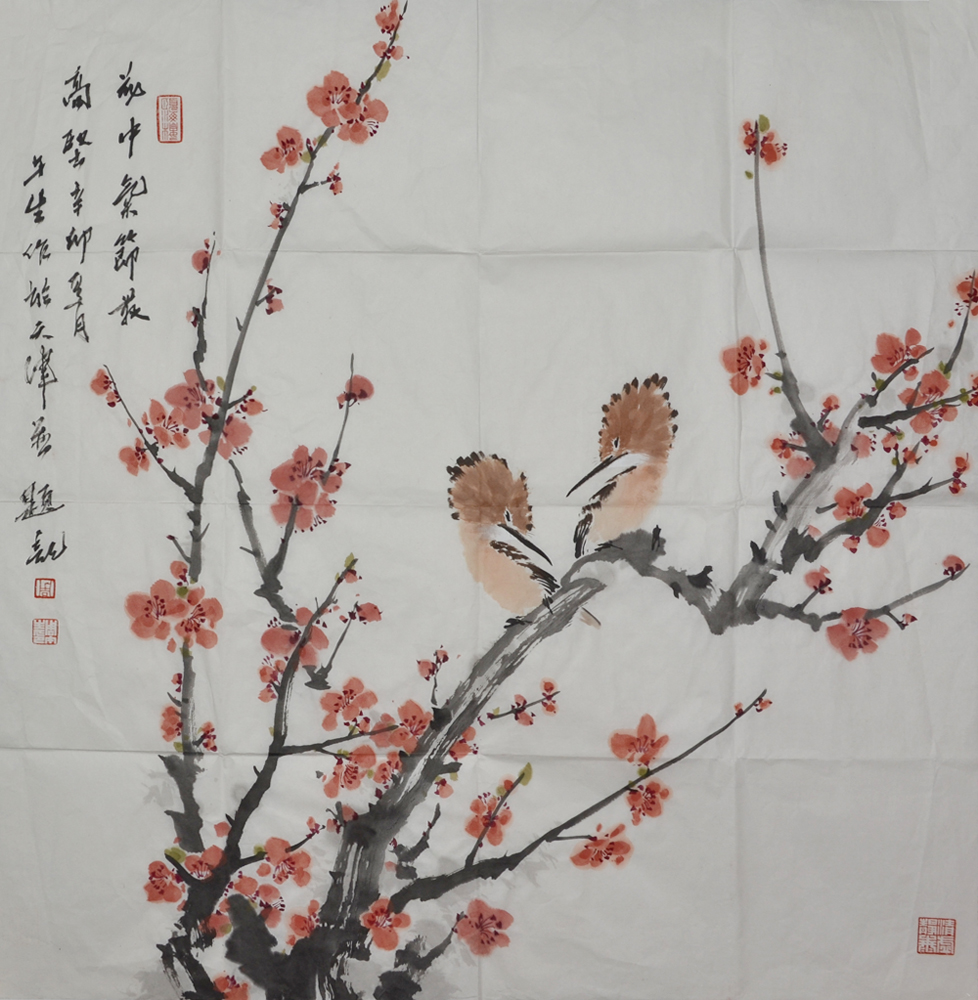 花中氣節最
高堅辛卯夏月
午生作於天津並題記